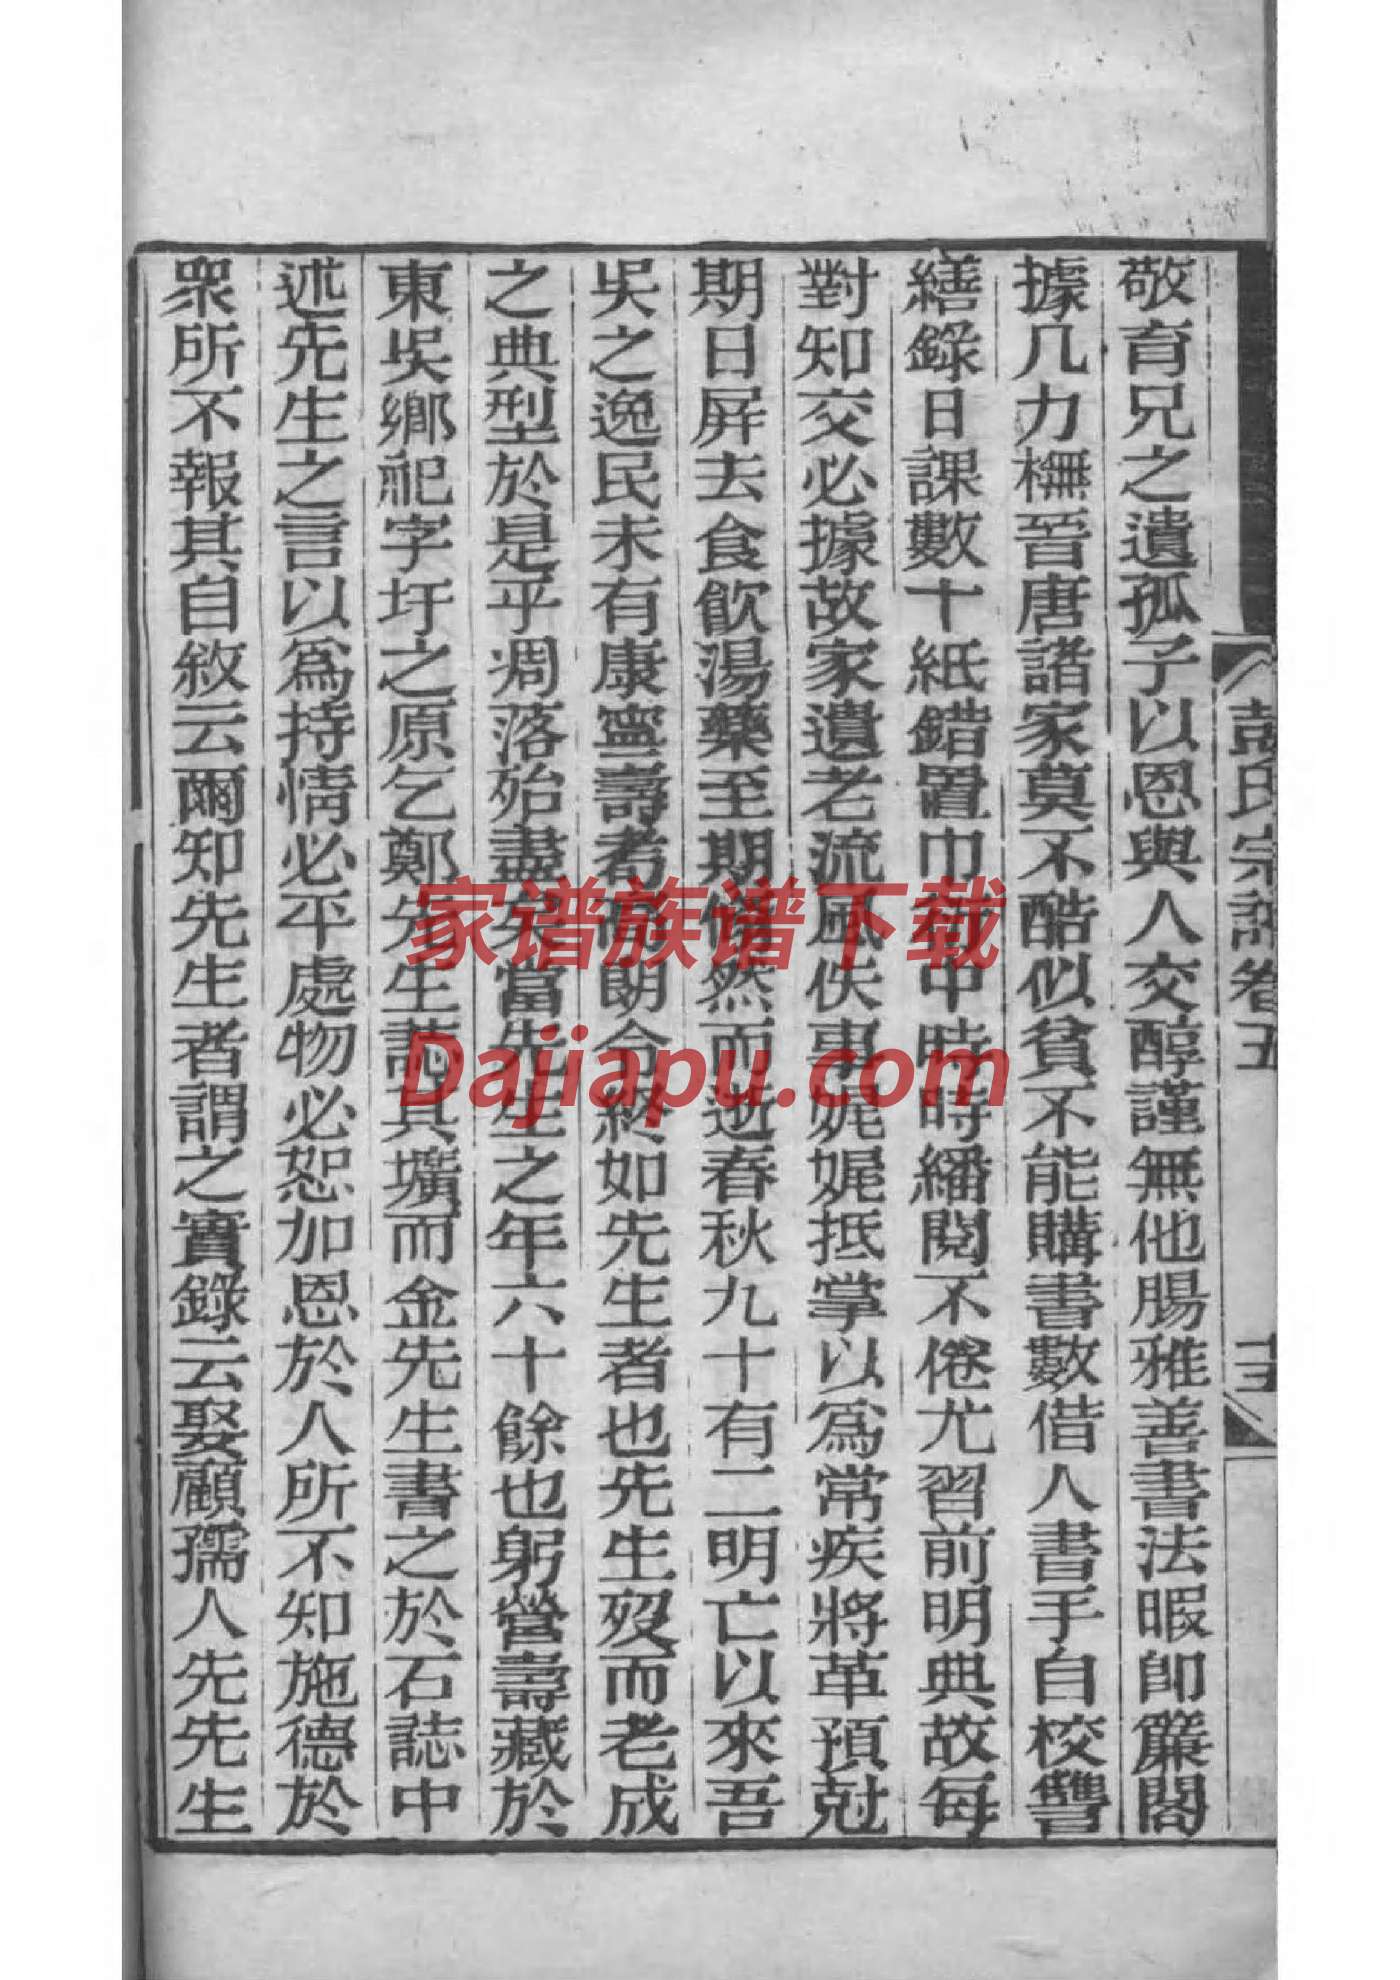 敬育兄之遺孤子以恩與人交醇謹無他腸雅善書法暇卽簾閣
據几力橅晉唐諸家莫不酷似貧不能購書數借人書手自校讐
繕錄日課數十紙錯置巾箱中時時繙閱不倦尤習前明典故每
對知交必據故家遺老流風佚事娓娓抵掌以爲常疾將革預尅
期日屏去食飮湯藥至期翛然而逝春秋九十有二明亡以來吾
吳之逸民未有康寧壽耇高朗令終如先生者也先生歿而老成
之典型於是乎凋落殆盡矣當先生之年六十餘也躬營壽藏於
東吳鄉祀字圩之原乞鄭先生誌其壙而金先生書之於石誌中
述先生之言以爲持情必平處物必恕加恩於人所不知施德於
衆所不報其自敘云爾知先生者謂之實錄云娶顧孺人先先生
彭氏宗譜卷五
十五
家谱族谱下载
Dajiapu.com